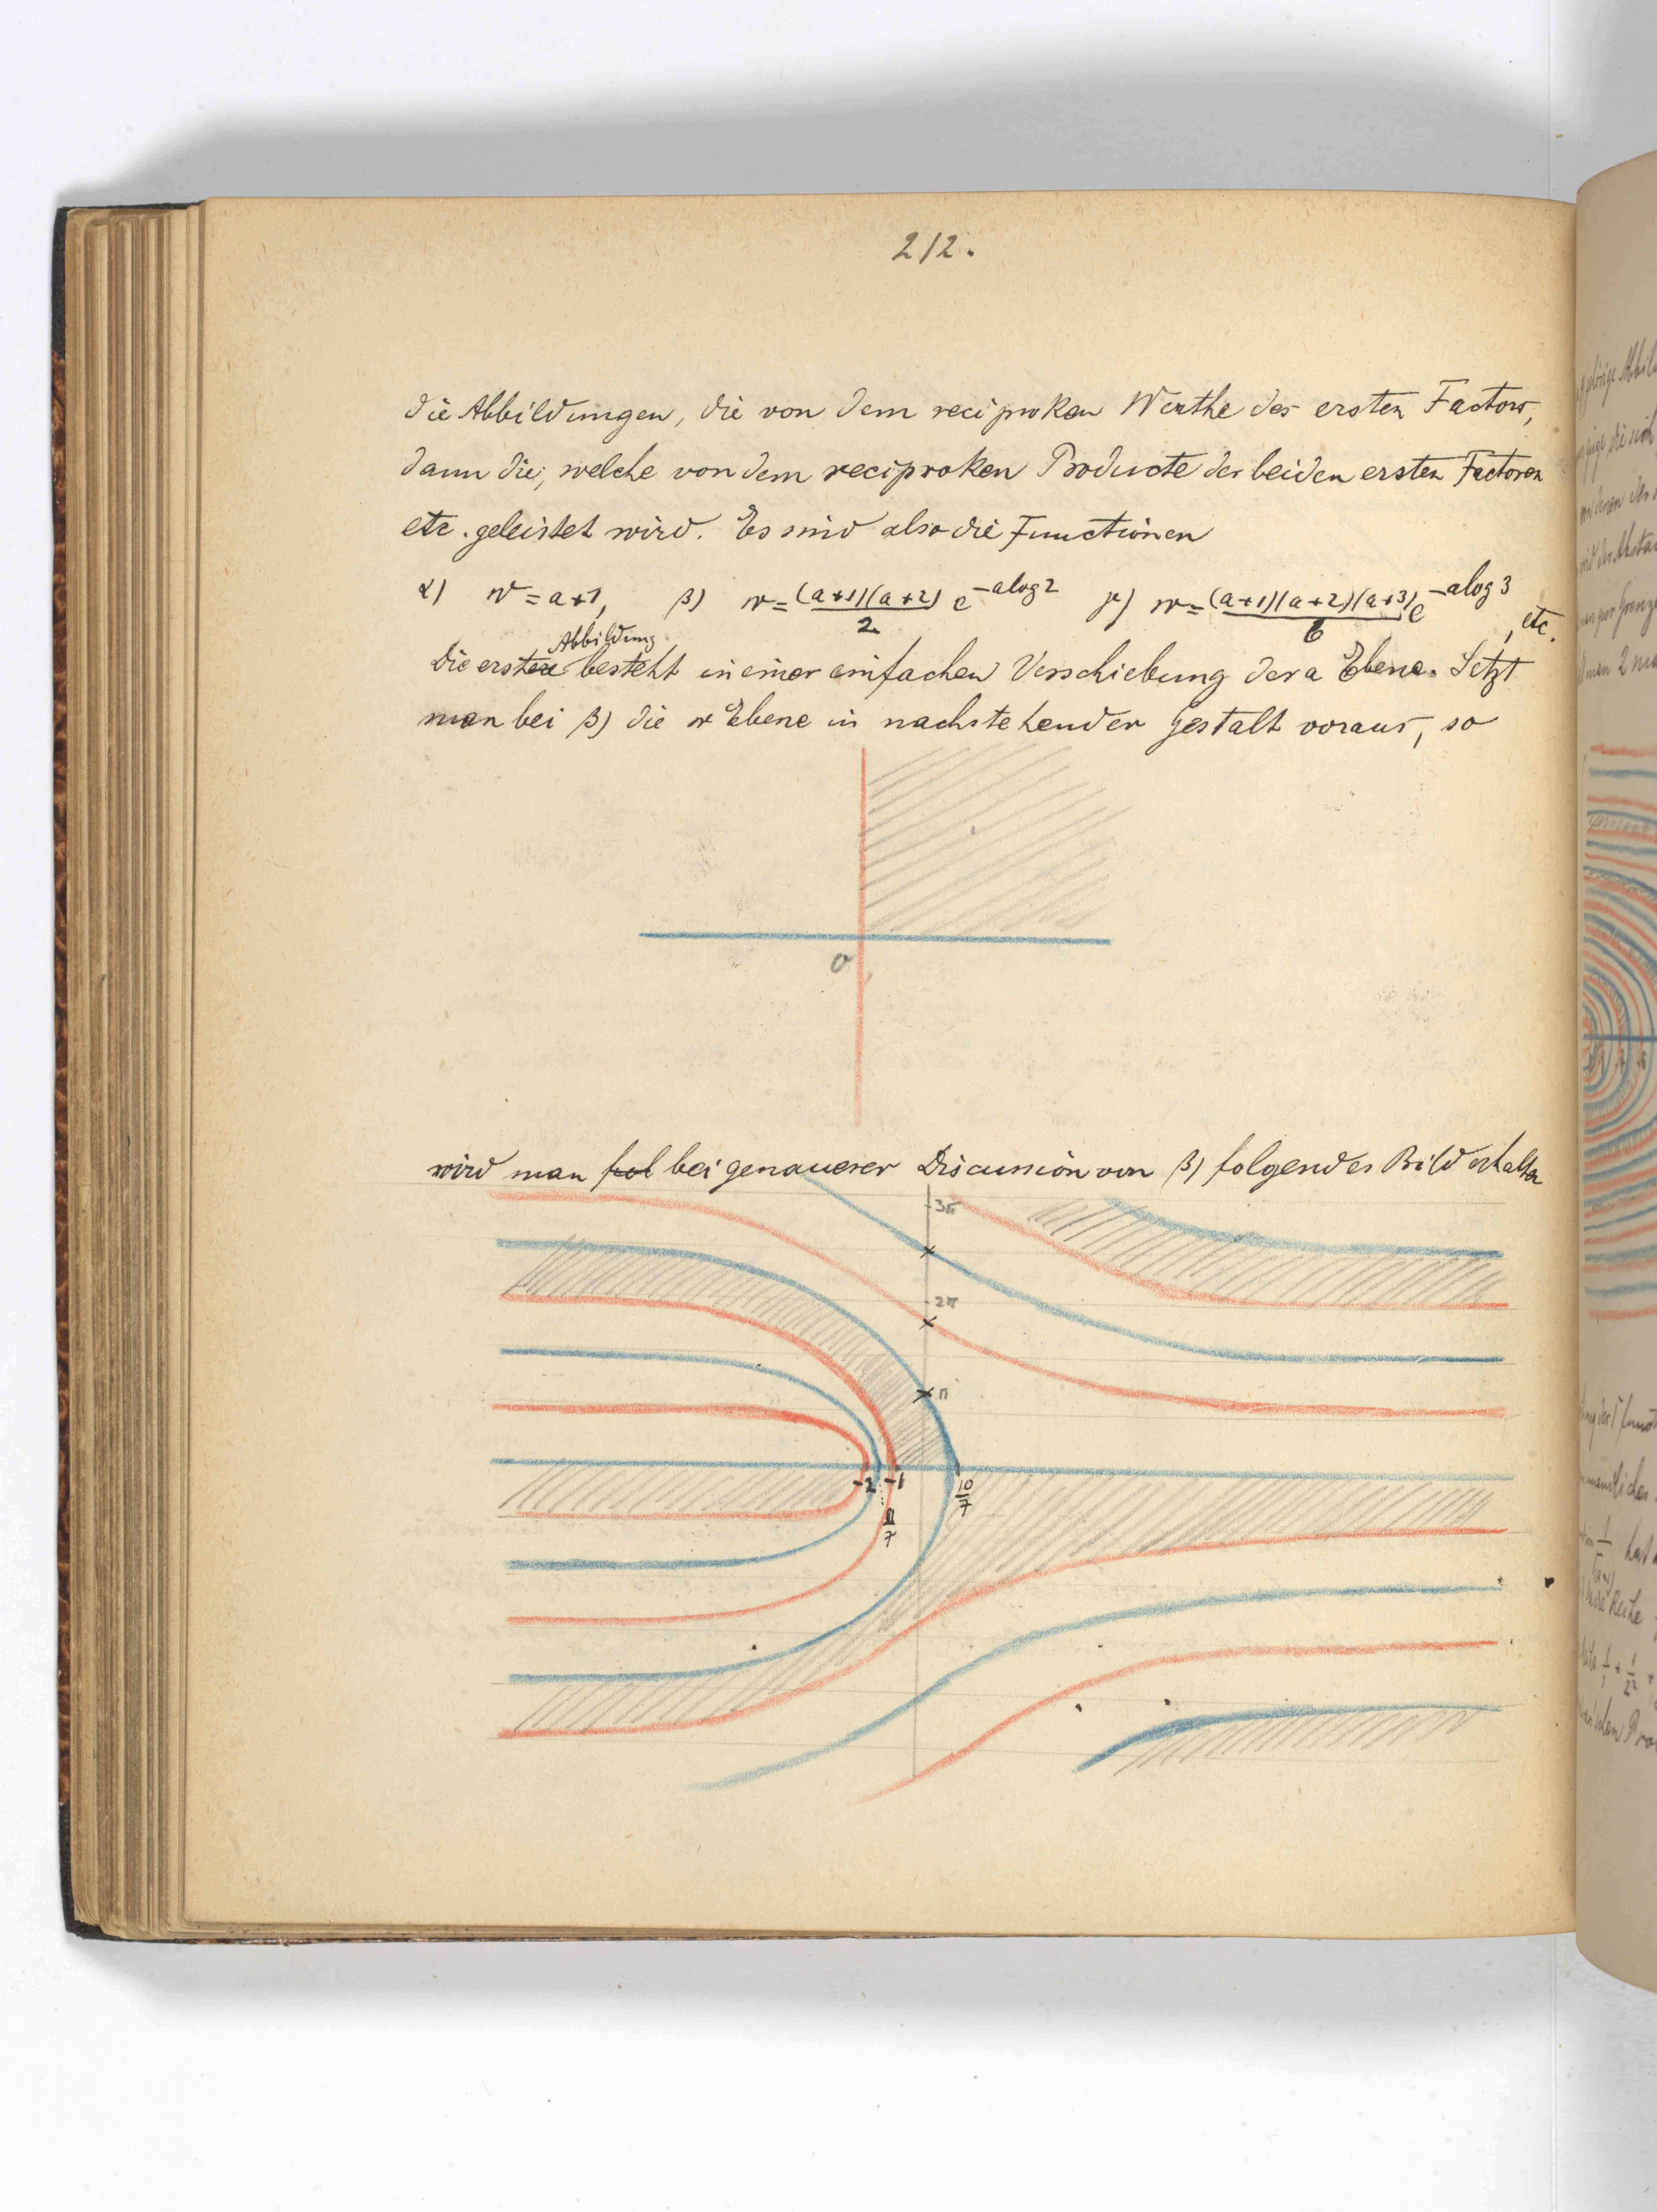 212.
die Abbildungen, die von dem reciproken Werthe des ersten Factors,
dann die, welche von dem reciproken Producte der beiden ersten Factoren
etc. geleistet wird. Es sind also die Functionen
α) w = a+1, β) w = (a+1)(a+2)/2 e^{-a log 2} γ) w = (a+1)(a+2)(a+3)/6 e^{-a log 3}, etc.
Abbildung
Die erste besteht in einer einfachen Verschiebung der a Ebene. Setzt
man bei β) die w Ebene in nachstehender Gestalt voraus, so
0
wird man fol bei genauerer Discussion von β) folgendes Bild erhalten
3π
2π
π
-2 -1 10/7